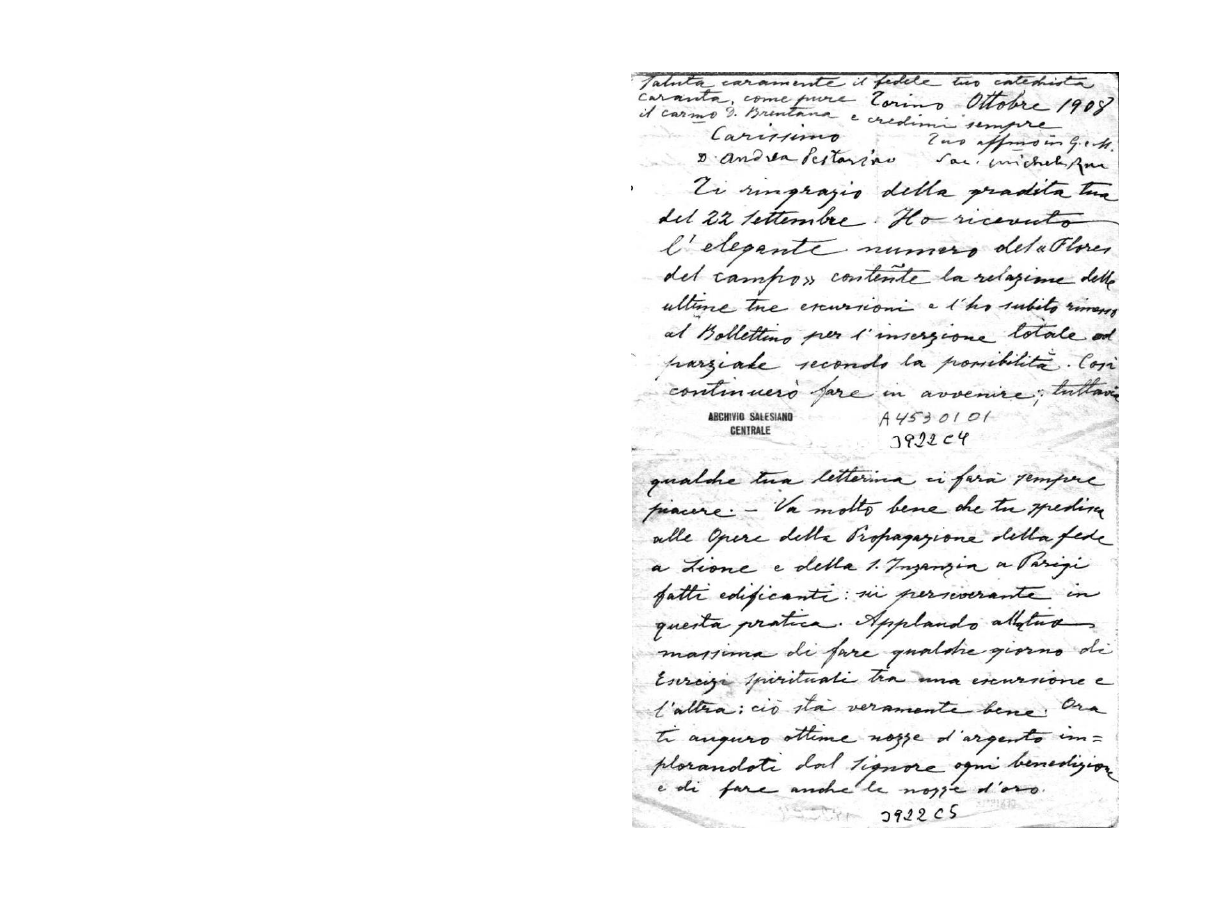 Saluta caramente il fedele tuo catechista
Caranta, come pure Torino Ottobre 1908
il carmo D. Brentana e credimi sempre
Carissimo Tuo affmo in G. e M.
D. Andrea Pestarino Sac. Michele Rua
Ti ringrazio della gradita tua
del 22 Settembre. Ho ricevuto
l'elegante numero del « Flores
del campo» contente la relazione delle
ultime tue escursioni e l'ho subito rimesso
al Bollettino per l'inserzione totale od
parziale secondo la possibilità. Così
continuerò fare in avvenire; tuttavia
ARCHIVIO SALESIANO
CENTRALE
A 453 01 01
3922 C4
qualche tua letterina ci farà sempre
piacere. - Va molto bene che tu spedisca
alle Opere della Propagazione della fede
a Lione e della S. Infanzia a Parigi
fatti edificanti: sii perseverante in
questa pratica. Applaudo alla tua
massima di fare qualche giorno di
Esercizi spirituali tra una escursione e
l'altra: ciò sta veramente bene. Ora
ti auguro ottime nozze d'argento im=
plorandoti dal Signore ogni benedizione
e di fare anche le nozze d'oro.
3922 C5